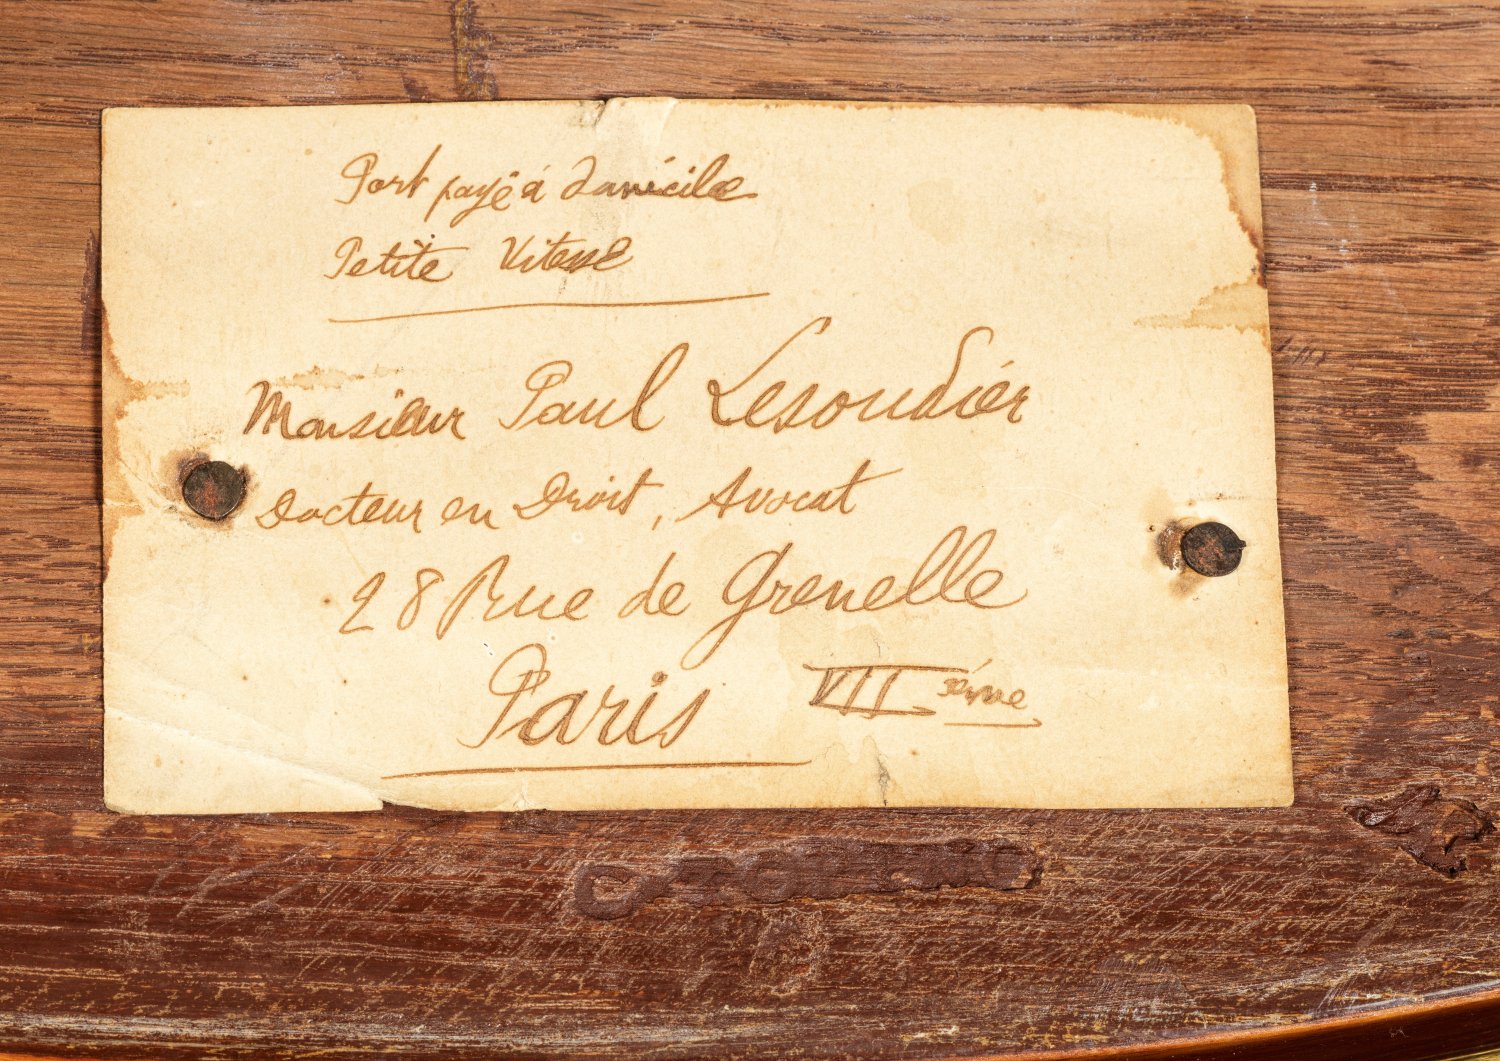 Port payé à domicile
Petite Vitesse
Monsieur Paul Lesoudier
Docteur en Droit, Avocat
28 Rue de Grenelle
Paris VII ème